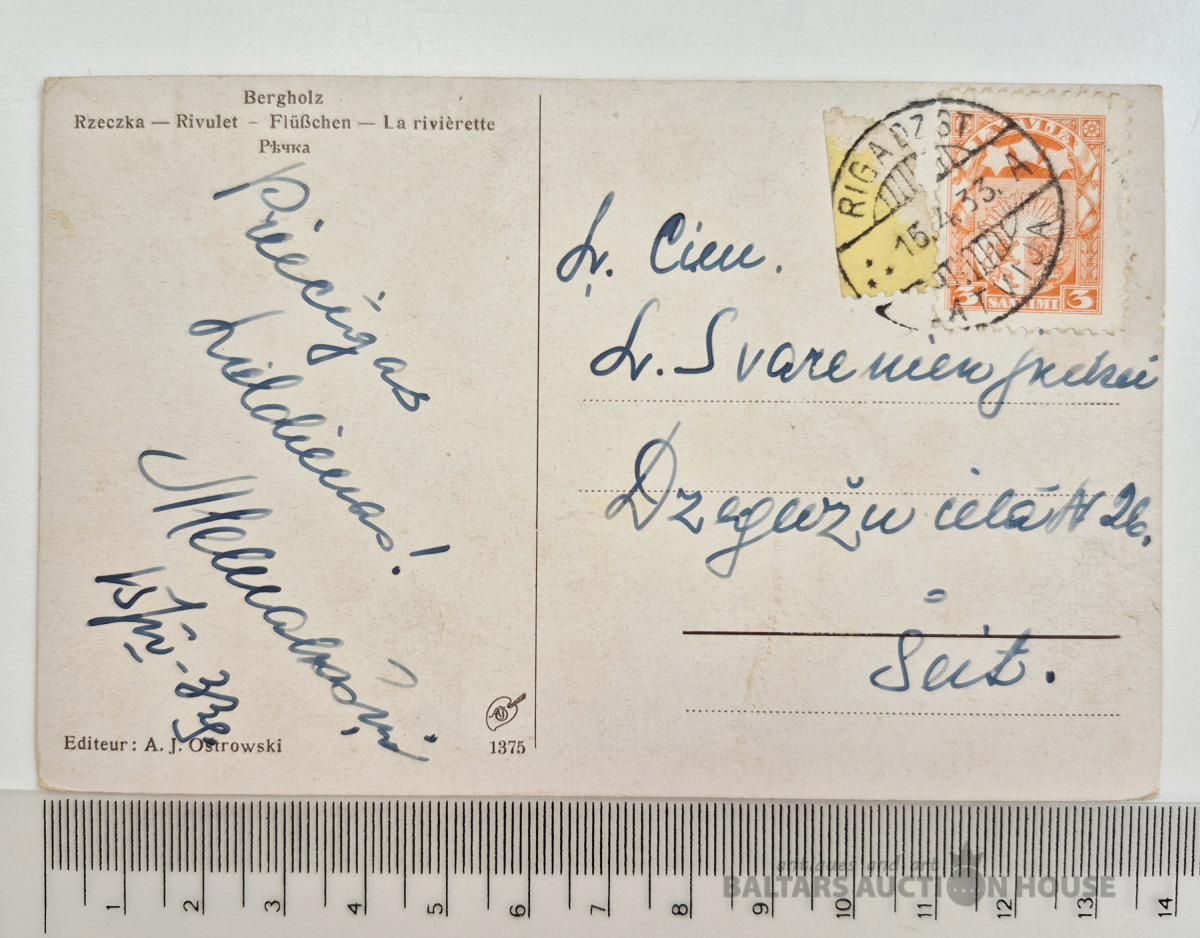 Bergholz
Rzeczka — Rivulet – Flüßchen — La rivièrette
Рѣчка
Priecīgas
Lieldienas!
15/IV - 33g.
Editeur: A. J. Ostrowski
1375
RIGA DZ ST
15.4.33. A
LATVIJA
LATVIJA
3 SANTIMI 3
Ļ. Cien.
Dzegužu ielā № 26.
Šeit.
1 2 3 4 5 6 7 8 9 10 11 12 13 14
antiques and art
BALTARS AUCTION HOUSE